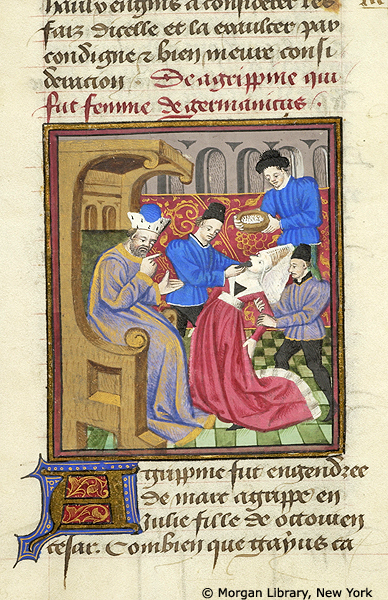 haulx engins a considerer les
faiz dicelle et la exaulcer par
condigne ⁊ bien meure consi
deration . De agrippine qui
fut femme de germanicus .
Agrippine fut engendree
de marc agrippe en
Julie fille de octouien
cesar. Combien que gayus ca
© Morgan Library, New York